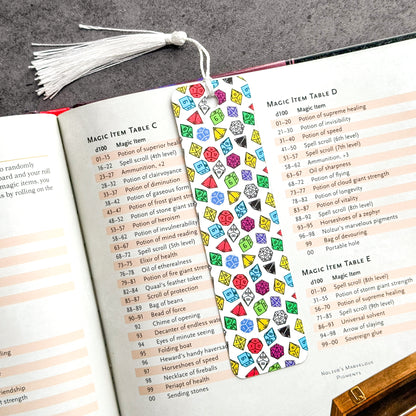 randomly
oard and your roll
magic items, you
es by rolling on the
iendship
skulls
Magic Item Table C
d100 Magic Item
01–15 Potion of superior heal
16–22 Spell scroll (4th level)
23–27 Ammunition, +2
28–32 Potion of clairvoyance
33–37 Potion of diminution
38–42 Potion of gaseous form
43–47 Potion of frost giant str
48–52 Potion of stone giant stre
53–57 Potion of heroism
58–62 Potion of invulnerability
63–67 Potion of mind reading
68–72 Spell scroll (5th level)
73–75 Elixir of health
76–78 Oil of etherealness
79–81 Potion of fire giant stren
82–84 Quaal's feather token
85–87 Scroll of protection
88–89 Bag of beans
90–91 Bead of force
92 Chime of opening
93 Decanter of endless wat
94 Eyes of minute seeing
95 Folding boat
96 Heward's handy haversa
97 Horseshoes of speed
98 Necklace of fireballs
99 Periapt of health
00 Sending stones
Magic Item Table D
d100 Magic Item
01–20 Potion of supreme healing
21–30 Potion of invisibility
31–40 Potion of speed
41–50 Spell scroll (6th level)
51–57 Spell scroll (7th level)
58–62 Ammunition, +3
63–67 Oil of sharpness
68–72 Potion of flying
73–77 Potion of cloud giant strength
78–82 Potion of longevity
83–87 Potion of vitality
88–92 Spell scroll (8th level)
93–95 Horseshoes of a zephyr
96–98 Nolzur's marvelous pigments
99 Bag of devouring
00 Portable hole
Magic Item Table E
d100 Magic Item
01–30 Spell scroll (8th level)
31–55 Potion of storm giant strength
56–70 Potion of supreme healing
71–85 Spell scroll (9th level)
86–93 Universal solvent
94–98 Arrow of slaying
99–00 Sovereign glue
Nolzur's Marvelous
Pigments